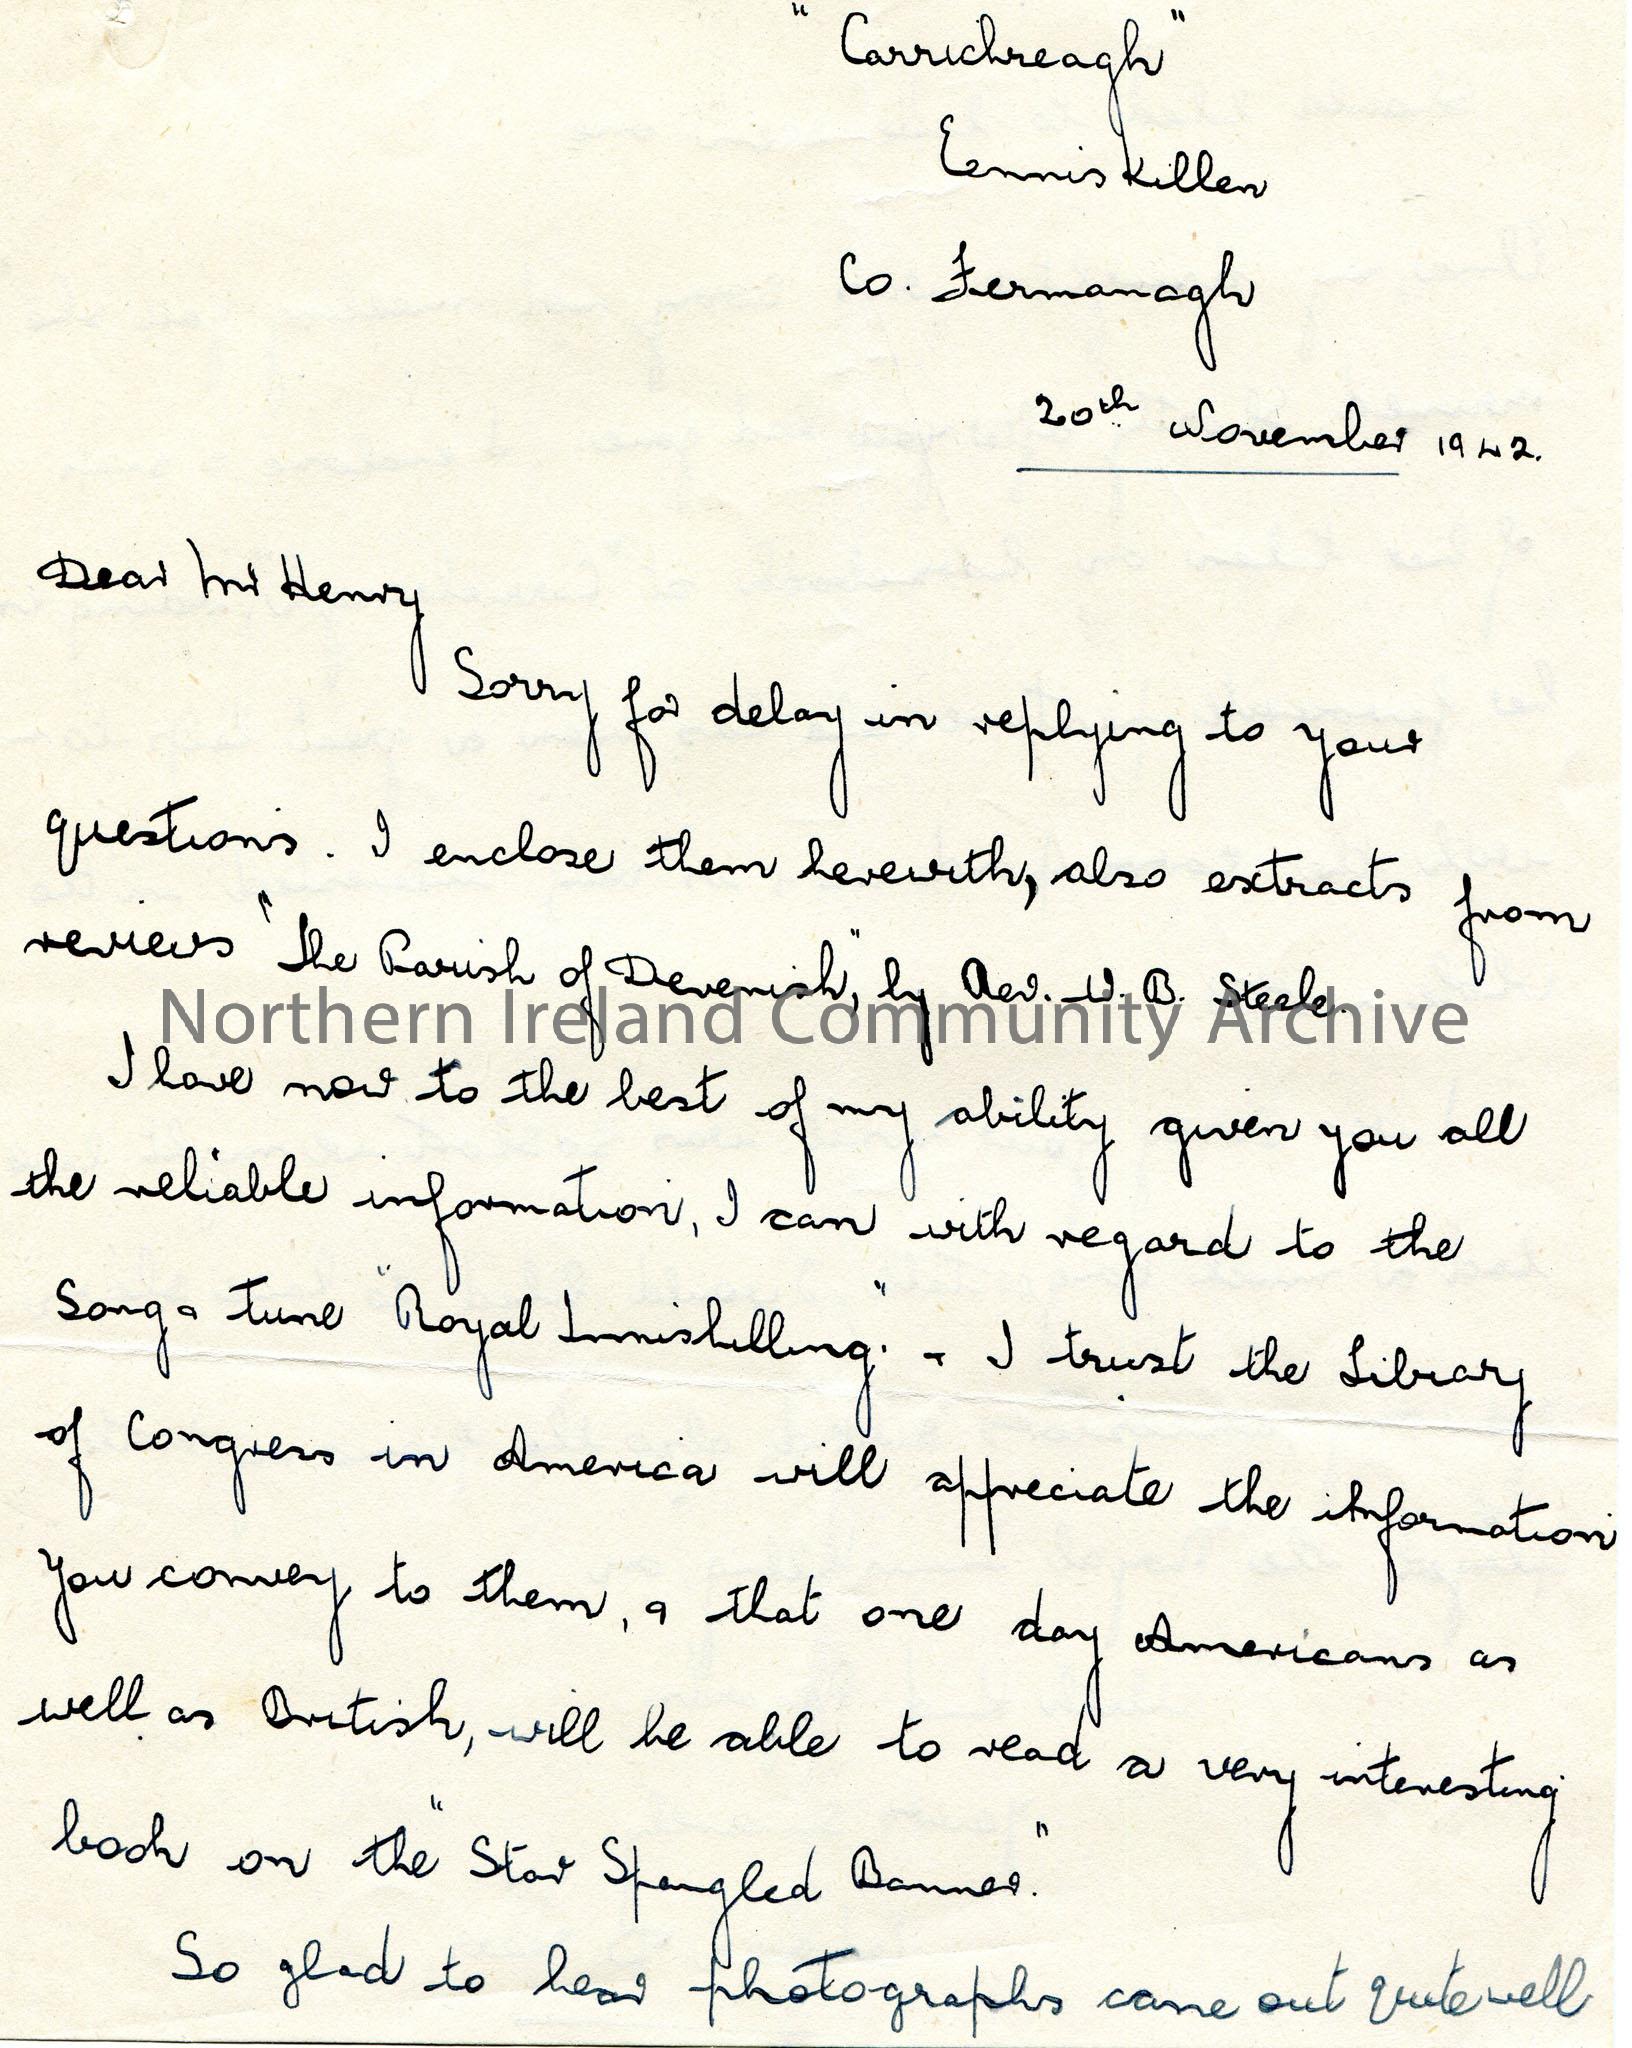 "Carrickreagh"
Enniskillen
Co. Fermanagh
20th November 1942.
Dear Mr Henry
Sorry for delay in replying to your
questions. I enclose them herewith, also extracts from
reviews "the Parish of Devenish", by Rev. W. B. Steele.
Northern Ireland Community Archive
I have now to the best of my ability given you all
the reliable information, I can with regard to the
Song & tune "Royal Inniskilling". & I trust the Library
of Congress in America will appreciate the information
you convey to them, & that one day Americans as
well as British, will be able to read a very interesting
book on the "Star Spangled Banner."
So glad to hear photographs came out quite well